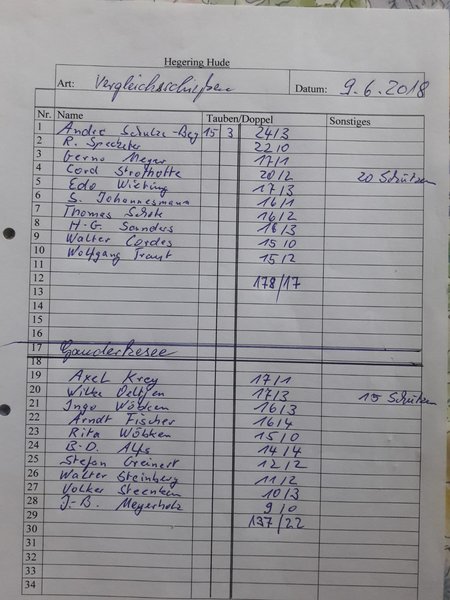 Hegering Hude
Art: Vergleichsschießen Datum: 9.6.2018
Nr. Name Tauben/Doppel Sonstiges
1 Andre Schulze-Berg 15 3 24/3
2 R. 22/0
3 Gerno Meyer 17/1
4 Cord Strothotte 20/2 20 Schützen
5 Edo Wieting 17/3
6 S. Johannesmann 16/1
7 Thomas 16/2
8 H-G. Sanders 16/3
9 Walter Cordes 15/0
10 Wolfgang Traut 15/2
11
12 178/17
13
14
15
16
17 Ganderkesee
18
19 Axel Krey 17/1
20 Wilke 17/3 15 Schützen
21 Ingo Wöbken 16/3
22 Arndt Fischer 16/4
23 Rita Wöbken 15/0
24 B-D. Alfs 14/4
25 Stefan Greinert 12/2
26 Walter Steinberg 11/2
27 Volker 10/3
28 J-B. Meyerholz 9/0
29 137/22
30
31
32
33
34